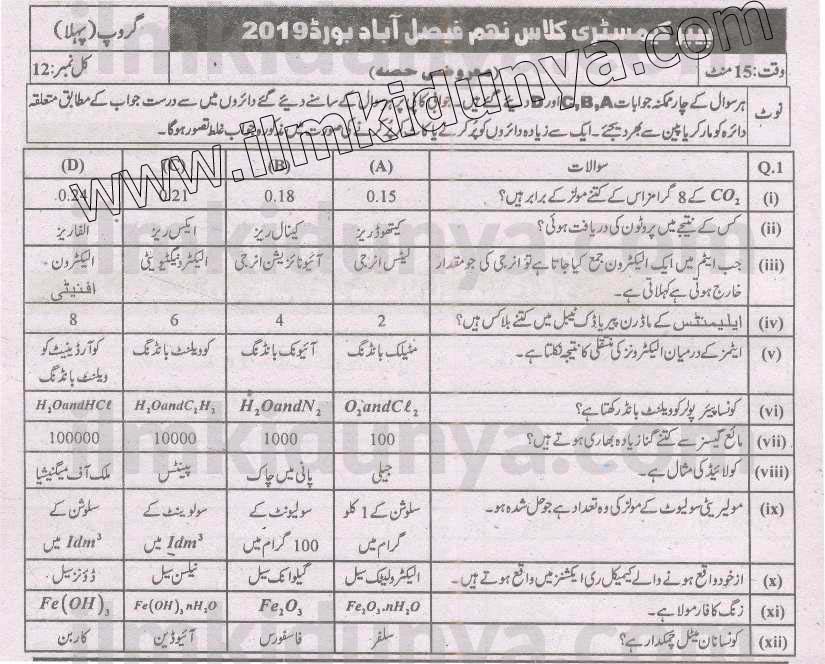 پیپر کیمسٹری کلاس نہم فیصل آباد بورڈ 2019 گروپ (پہلا)
وقت: 15 منٹ (معروضی حصہ) کل نمبر: 12
نوٹ ہر سوال کے چار ممکنہ جوابات C,B,A اور D دیئے گئے ہیں۔ جوابی کاپی پر ہر سوال کے سامنے دیئے گئے دائروں میں سے درست جواب کے مطابق متعلقہ
دائرہ کو مارکر یا پین سے بھر دیجئے۔ ایک سے زیادہ دائروں کو پُر کرنے یا کاٹ کر پُر کرنے کی صورت میں مذکورہ جواب غلط تصور ہوگا۔
Q.1 سوالات (A) (B) (D)
(i) CO₂ کے 8 گرامز اس کے کتنے مولز کے برابر ہیں؟ 0.15 0.18 0.21 0.24
(ii) کس کے نتیجے میں پروٹون کی دریافت ہوئی؟ کیتھوڈ ریز کینال ریز ایکس ریز الفا ریز
(iii) جب ایٹم میں ایک الیکٹرون جمع کیا جاتا ہے تو انرجی کی جو مقدار لیٹس انرجی آئیونائزیشن انرجی الیکٹرونیگٹیویٹی الیکٹرون
خارج ہوتی ہے کہلاتی ہے۔ افنیٹی
(iv) ایلیمنٹس کے ماڈرن پیریاڈک ٹیبل میں کتنے بلاکس ہیں؟ 2 4 6 8
(v) ایٹمز کے درمیان الیکٹرونز کی منتقلی کا نتیجہ نکلتا ہے۔ مٹیلک بانڈنگ آئیونک بانڈنگ کوویلنٹ بانڈنگ کوآرڈینیٹ کو
ویلنٹ بانڈنگ
(vi) کونسا پیئر پولر کوویلنٹ بانڈ رکھتا ہے؟ O₂andCℓ₂ H₂OandN₂ H₂OandC₂H₂ H₂OandHCℓ
(vii) مائع گیسز سے کتنے گنا زیادہ بھاری ہوتے ہیں؟ 100 1000 10000 100000
(viii) کولائیڈ کی مثال ہے۔ جیلی پانی میں چاک پینٹس ملک آف میگنیشیا
(ix) مولیریٹی سولیوٹ کے مولز کی وہ تعداد ہے جو حل شدہ ہو۔ سلوشن کے 1 کلو سولیونٹ کے سولوینٹ کے سلوشن کے
گرام میں 100 گرام میں 1dm³ میں 1dm³ میں
(x) ازخود واقع ہونے والے کیمیکل ری ایکشنز میں واقع ہوتے ہیں۔ الیکٹرولیٹک سیل گیلوانک سیل نیلسن سیل ڈاؤنز سیل
(xi) زنگ کا فارمولا ہے۔ Fe₂O₃.nH₂O Fe₂O₃ Fe(OH)₃.nH₂O Fe(OH)₃
(xii) کونسا نان میٹل چمکدار ہے؟ سلفر فاسفورس آئیوڈین کاربن
www.ilmkidunya.com